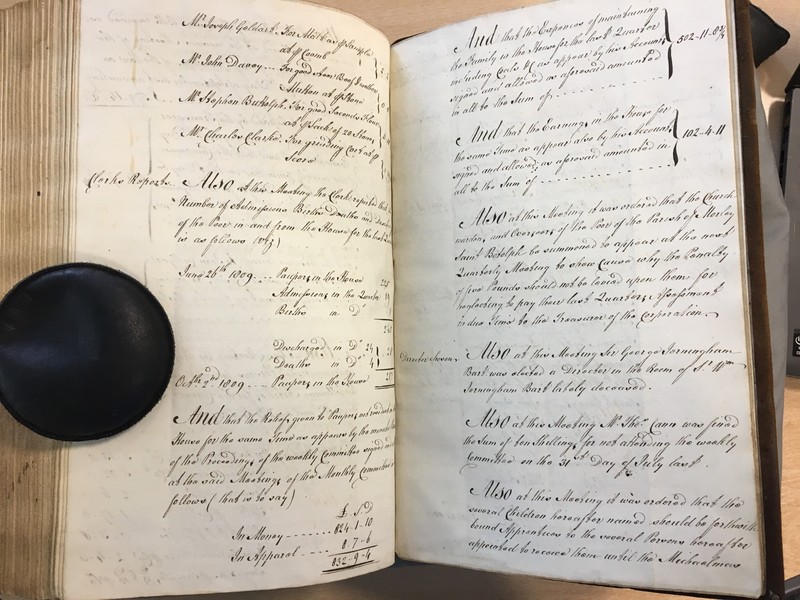 Mr. Joseph Goddard. For Malt as pr. Sample
at pr. Coomb
Mr. John Davey ... For good Ston Beef & wether
Mutton at pr. Stone
Mr. Stephen Butolph. For good Seconds Flour
at pr. Sack of 20 Stone
Mr. Charles Clarke. For grinding Corn at pr.
Score
Clerks Report.
Also at this Meeting the Clerk reported that the
Number of Admissions Births Deaths and
of the Poor in and from the House for the last
is as follows (Vizt.)
June 26th 1809 .... Paupers in the House
Admissions in the Quarter
Births in Do.
Discharged in Do. 24
Deaths in Do. 4
Octbr. 2nd 1809 .... Paupers in the House
And that the Relief given to Paupers
House for the same Time as appears by the
of the Proceedings of the weekly Committee signed
at the said Meetings of the Monthly Committee
follows (that is to say)
£ S D
In Money ........ 824-1-10
In Apparel ....... 8-7-6
832-9-4
And that the Expences of maintaining
the Family in the House for the last Quarter
including Coals &c as appear by his Account
signed and allowed as aforesaid amounted
in all to the Sum of 502-11-0¾
And that the Earnings in the House for
the same Time as appear also by his Account
signed and allowed as aforesaid amounted in
all to the Sum of 102-4-11
Also at this Meeting it was ordered that the Church
wardens and Overseers of the Poor of the Parish of Morley
Saint Botolph be summoned to appear at the next
Quarterly Meeting to show Cause why the Penalty
of five Pounds should not be levied upon them for
neglecting to pay their last Quarters Assessment
in due Time to the Treasurer of the Corporation.
Director Sworn.
Also at this Meeting Sir George Jerningham
Bart. was elected a Director in the Room of Sr. Wm.
Jerningham Bart lately deceased.
Also at this Meeting Mr. Thos. Cann was fined
the Sum of ten Shillings for not attending the weekly
Committee on the 31st Day of July last.
Also at this Meeting it was ordered that the
several Children hereafter named should be forthwith
bound Apprentices to the several Persons hereafter
appointed to receive them until the Michaelmas